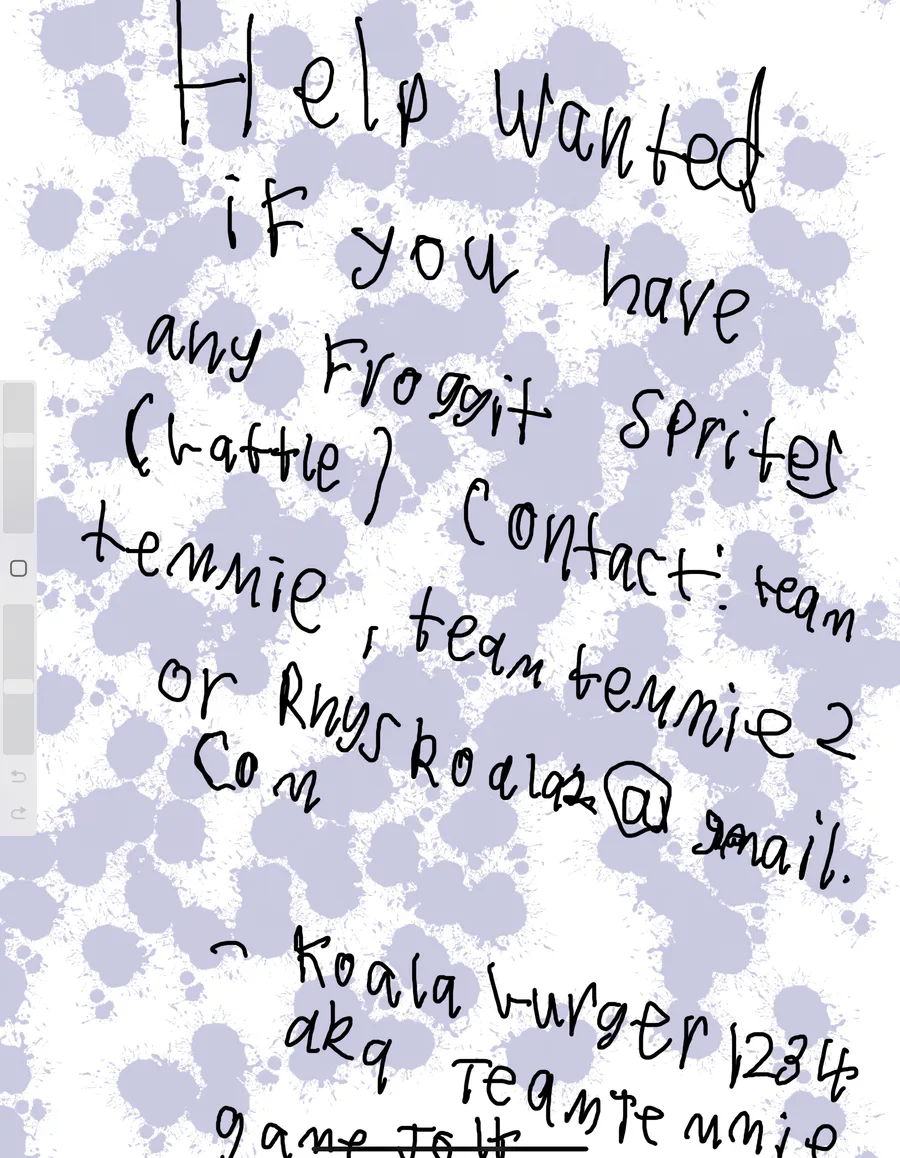 Help wanted
if you have
any Froggit sprites
(battle) contact: team
temmie, team temmie 2
or Rhys koala @ gmail.
com
- Koala burger 1234
aka Team Temmie
game Jolt